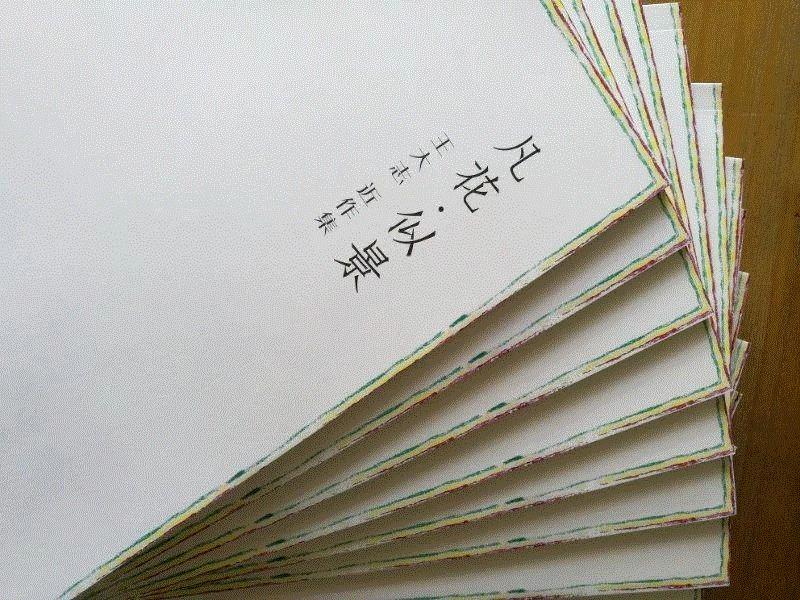 凡花·似景
王大志近作集